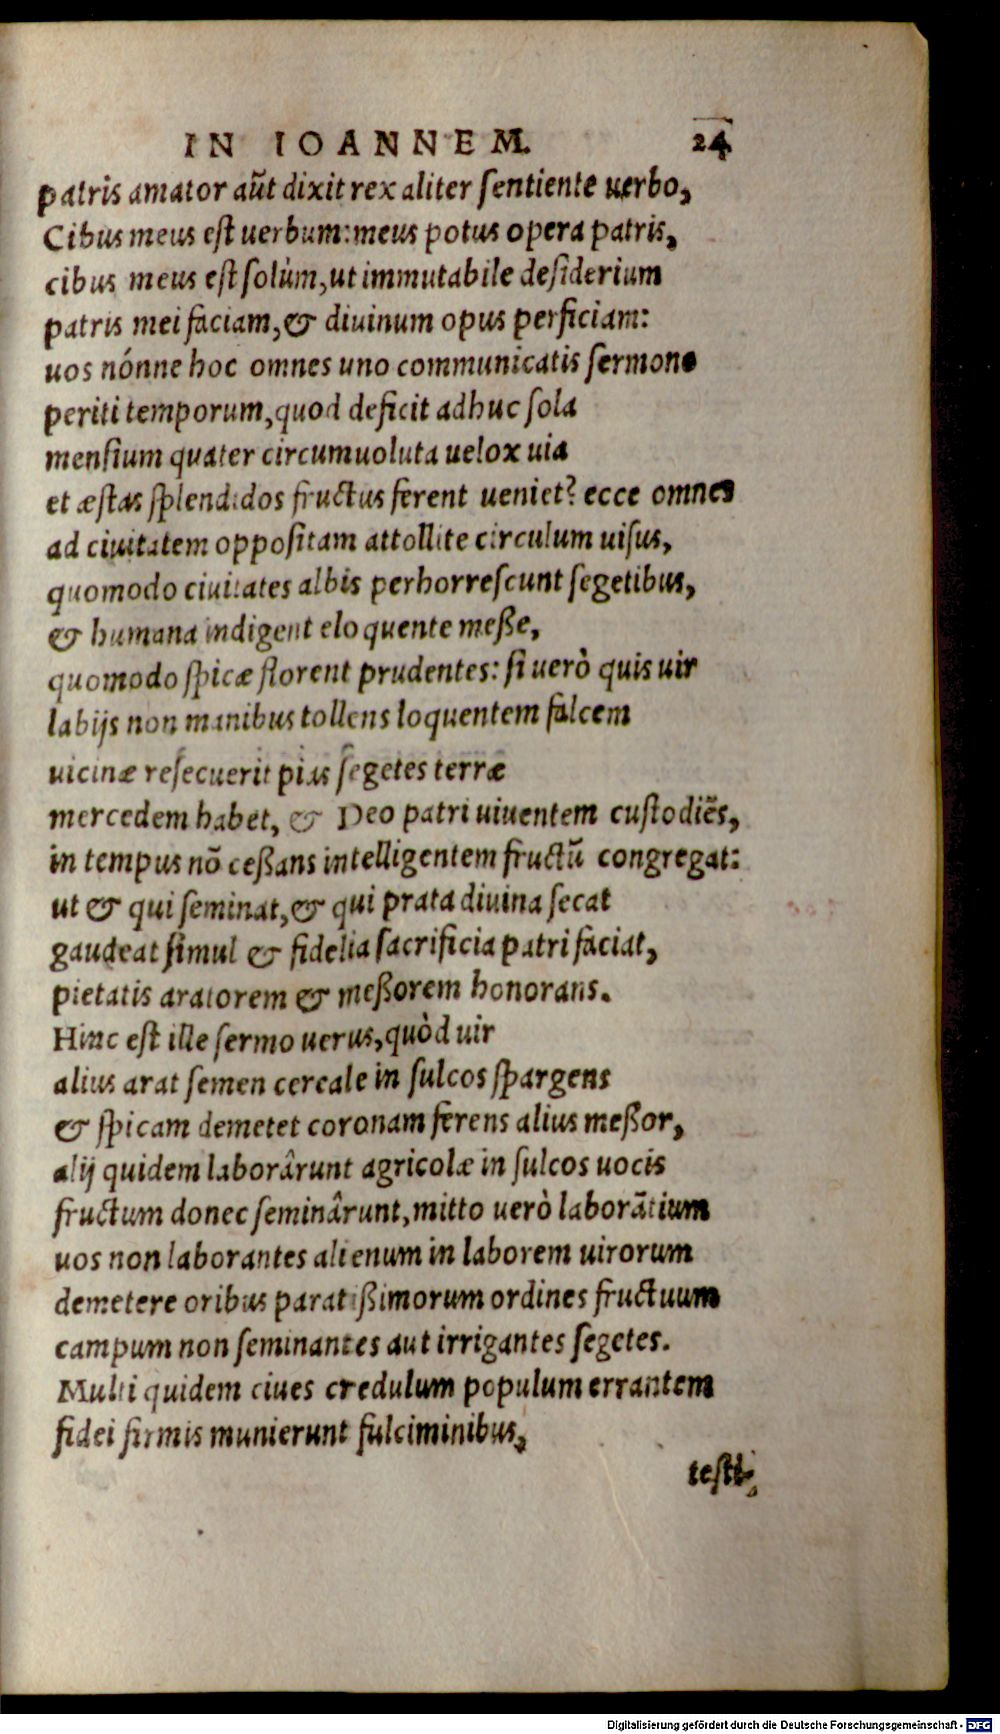 IN IOANNEM. 24
patris amator aũt dixit rex aliter sentiente uerbo,
Cibus meus est uerbum: meus potus opera patris,
cibus meus est solùm, ut immutabile desiderium
patris mei faciam, & diuinum opus perficiam:
uos nónne hoc omnes uno communicatis sermone
periti temporum, quod deficit adhuc sola
mensium quater circumuoluta uelox uia
et æstas splendidos fructus ferent ueniet? ecce omnes
ad ciuitatem oppositam attollite circulum uisus,
quomodo ciuitates albis perhorrescunt segetibus,
& humana indigent eloquente meße,
quomodo spicæ florent prudentes: si uerò quis uir
labijs non manibus tollens loquentem falcem
uicinæ resecuerit pias segetes terræ
mercedem habet, & Deo patri uiuentem custodiẽs,
in tempus nõ ceßans intelligentem fructũ congregat:
ut & qui seminat, & qui prata diuina secat
gaudeat simul & fidelia sacrificia patri faciat,
pietatis aratorem & meßorem honorans.
Hinc est ille sermo uerus, quòd uir
alius arat semen cereale in sulcos spargens
& spicam demetet coronam ferens alius meßor,
alij quidem laborârunt agricolæ in sulcos uocis
fructum donec seminârunt, mitto uerò laborãtium
uos non laborantes alienum in laborem uirorum
demetere oribus paratißimorum ordines fructuum
campum non seminantes aut irrigantes segetes.
Multi quidem ciues credulum populum errantem
fidei firmis munierunt fulciminibus,
testi-
Digitalisierung gefördert durch die Deutsche Forschungsgemeinschaft - DFG